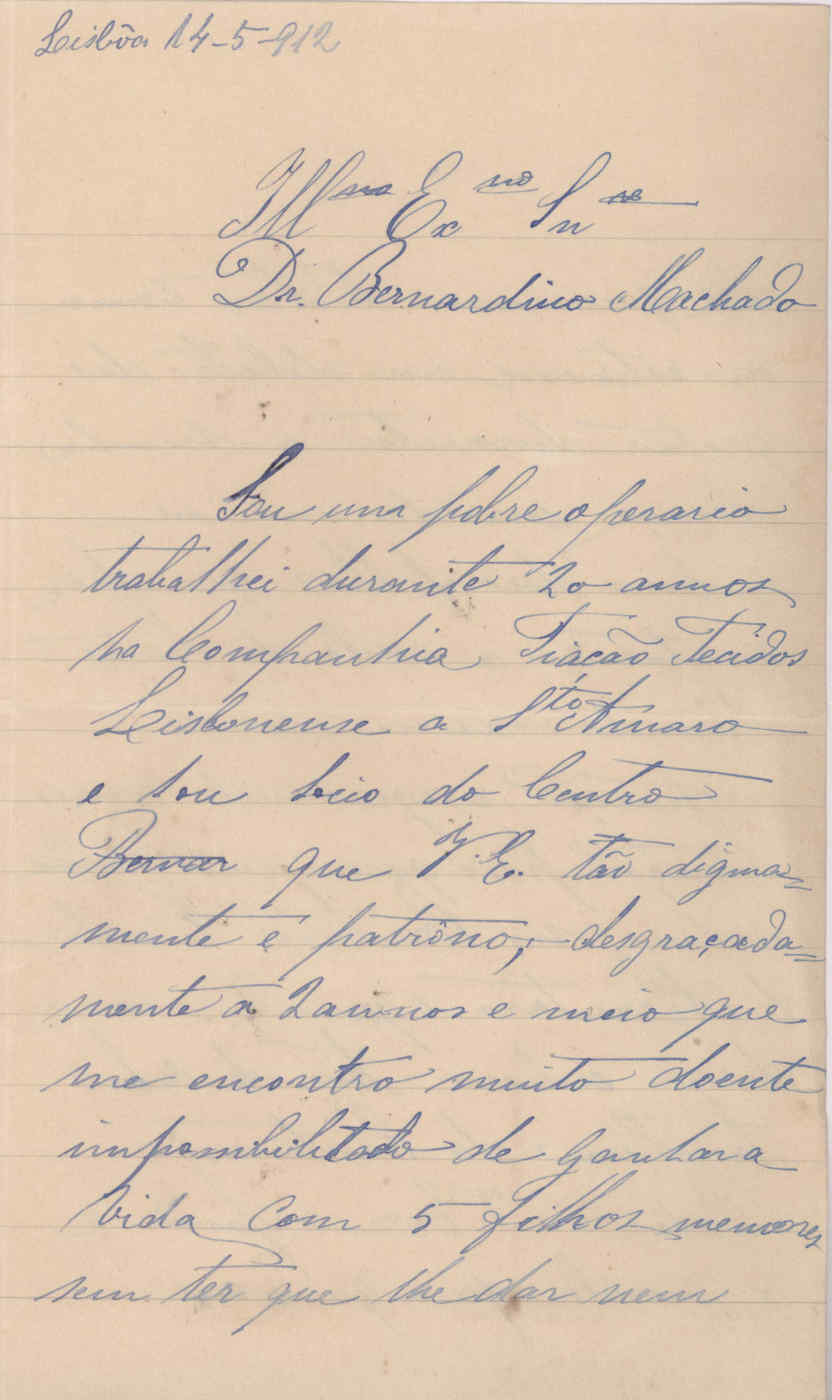 Lisbôa 14-5-912
Illmo Exmo Snr
Dr. Bernardino Machado
Sou um pobre operario
trabalhei durante 20 annos
na Companhia Fiação Tecidos
Lisbonense a Sto Amaro
e sou socio do Centro
Bernar que V. E. tão digna=
mente é patrôno; desgraçada=
mente a 2 annos e meio que
me encontro muito doente
impossibilitado de ganhar a
vida com 5 filhos menores
sem ter que lhe dar nem